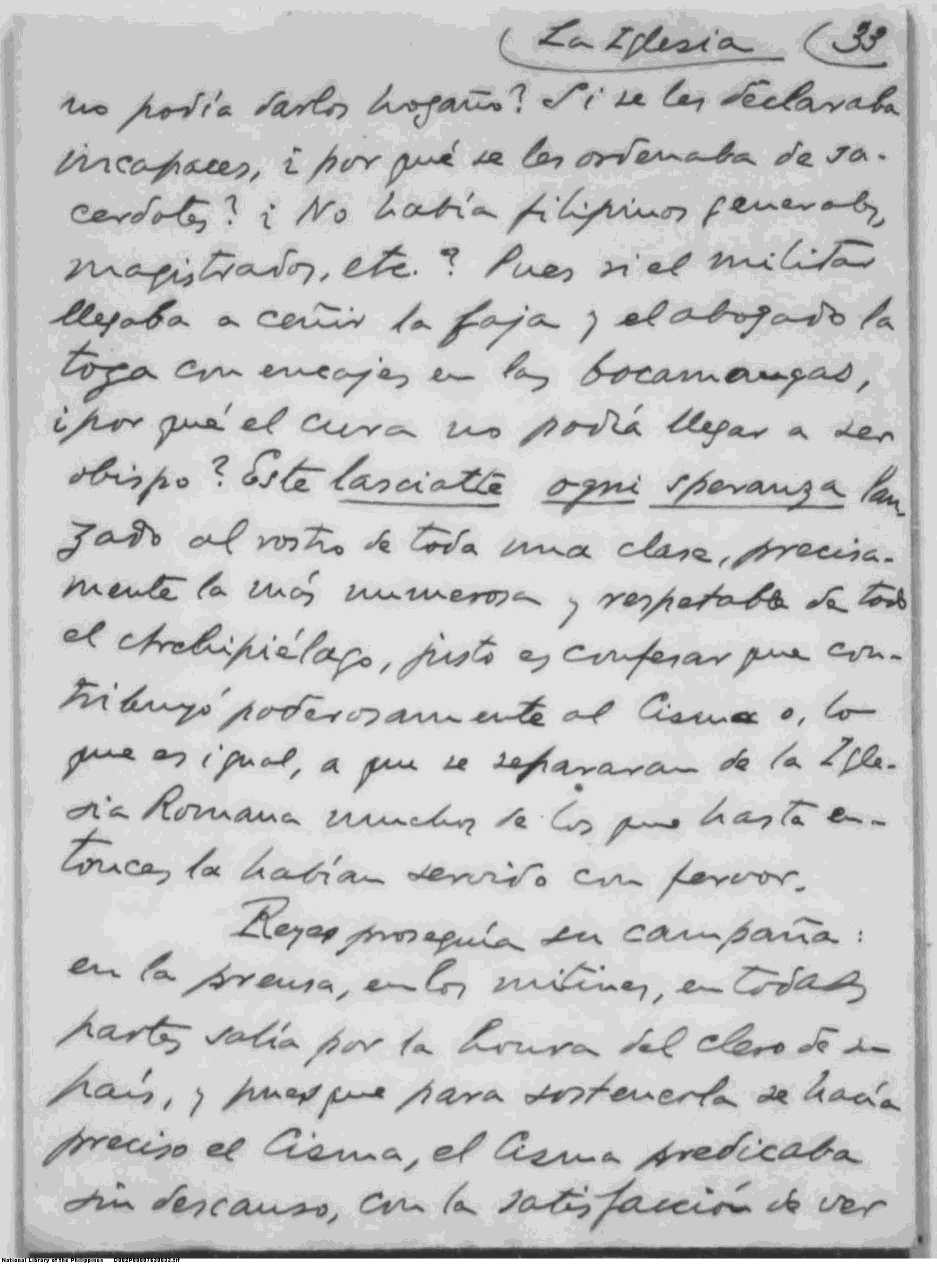 La Iglesia 33
no podía darlos hogaño? Si se les declaraba
incapaces, ¿por qué se les ordenaba de sa-
cerdotes? ¿No había filipinos generales,
magistrados, etc.? Pues si el militar
llegaba a ceñir la faja y el abogado la
toga con encajes en las bocamangas,
¿por qué el cura no podía llegar a ser
obispo? Este lasciatte ogni speranza lan-
zado al rostro de toda una clase, precisa-
mente la más numerosa y respetable de todo
el Archipiélago, justo es confesar que con-
tribuyó poderosamente al Cisma o, lo
que es igual, a que se separaran de la Igle-
sia Romana muchos de los que hasta en-
tonces la habían servido con fervor.
Reyes proseguía su campaña:
en la prensa, en los mitines, en todas
partes salía por la honra del clero de su
país, y puesque para sostenerla se hacía
preciso el Cisma, el Cisma predicaba
sin descanso, con la satisfacción de ver
National Library of the Philippines